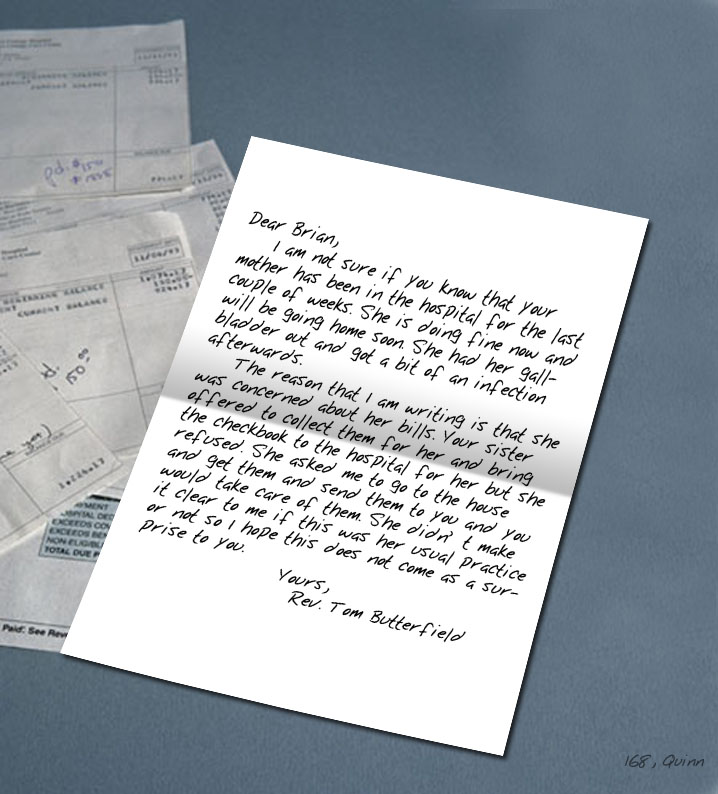 Dear Brian,
I am not sure if you know that your
mother has been in the hospital for the last
couple of weeks. She is doing fine now and
will be going home soon. She had her gall-
bladder out and got a bit of an infection
afterwards.
The reason that I am writing is that she
was concerned about her bills. Your sister
offered to collect them for her and bring
the checkbook to the hospital for her but she
refused. She asked me to go to the house
and get them and send them to you and you
would take care of them. She didn't make
it clear to me if this was her usual practice
or not so I hope this does not come as a sur-
prise to you.
Yours,
Rev. Tom Butterfield
pd. $150
CURRENT BALANCE
50.00
EXCEEDS
TOTAL DUE
Paid: See
168, Quinn